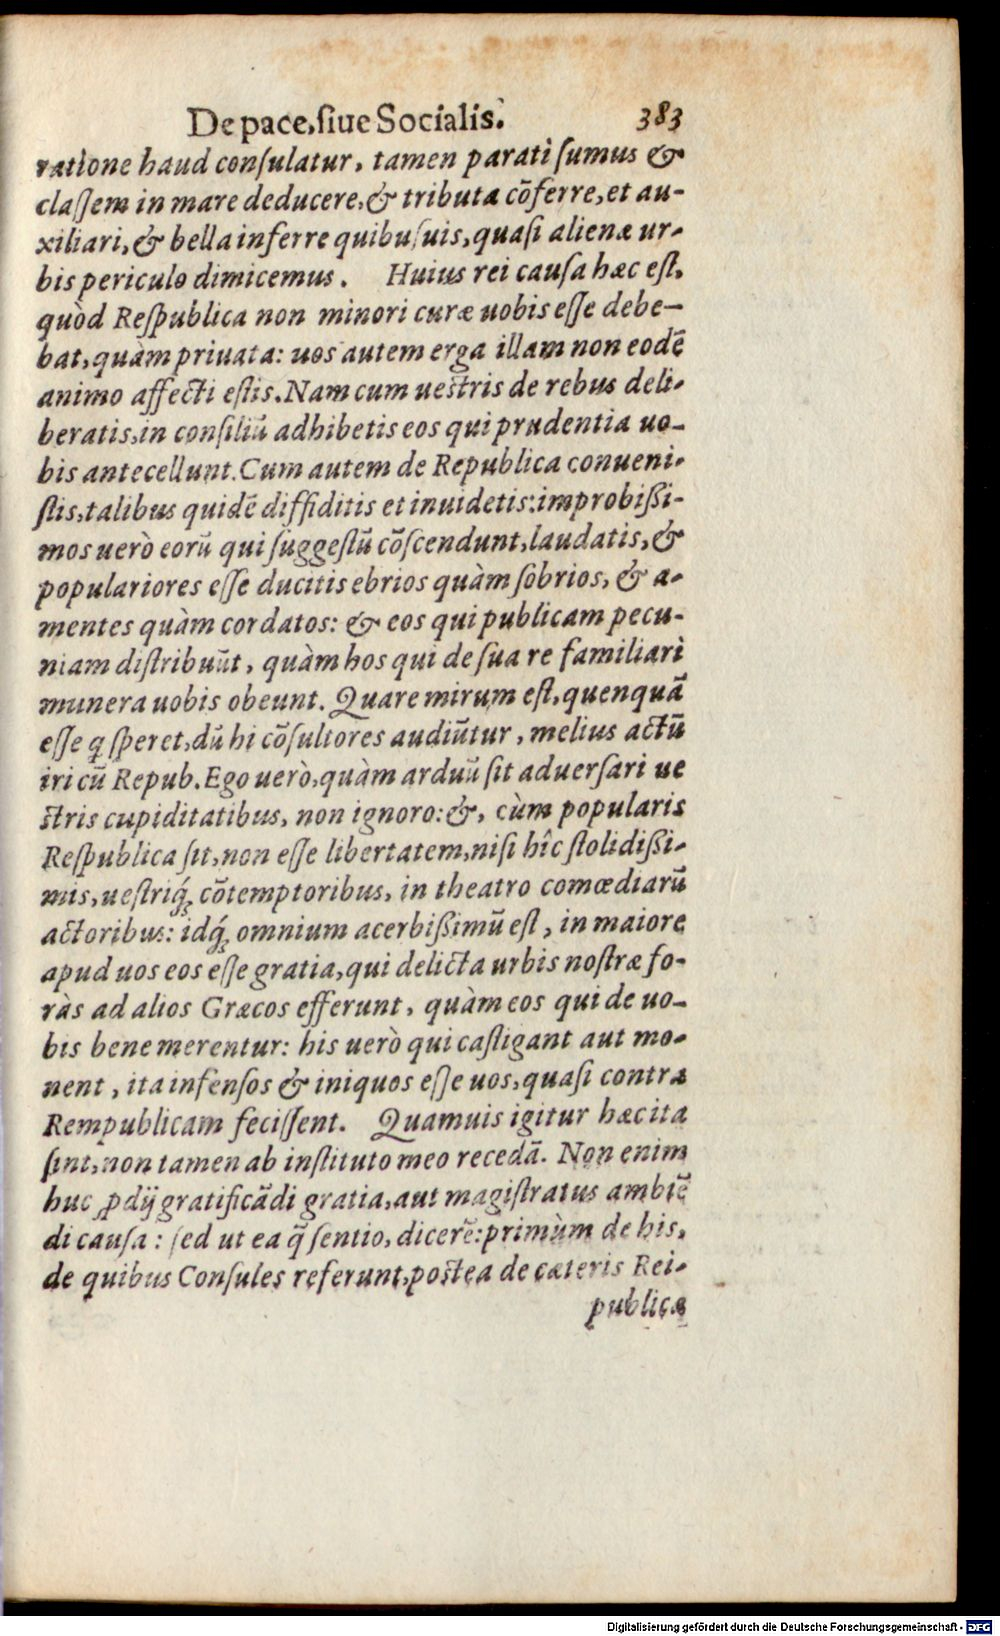 De pace, ſiue Socialis. 383
ratione haud conſulatur, tamen parati ſumus &
claſſem in mare deducere, & tributa cõferre, et au-
xiliari, & bella inferre quibuſuis, quaſi alienæ ur-
bis periculo dimicemus. Huius rei cauſa hæc eſt,
quòd Reſpublica non minori curæ uobis eſſe debe-
bat, quàm priuata: uos autem erga illam non eodẽ
animo affecti eſtis. Nam cum ueſtris de rebus deli-
beratis, in conſiliũ adhibetis eos qui prudentia uo-
bis antecellunt. Cum autem de Republica conueni-
ſtis, talibus quidẽ diffiditis et inuidetis: improbißi-
mos uerò eorũ qui ſuggeſtũ cõſcendunt, laudatis, &
populariores eſſe ducitis ebrios quàm ſobrios, & a-
mentes quàm cordatos: & eos qui publicam pecu-
niam diſtribuũt, quàm hos qui de ſua re familiari
munera uobis obeunt. Quare mirum eſt, quenquã
eſſe q ſperet, dũ hi cõſultores audiũtur, melius actũ
iri cũ Repub. Ego uerò, quàm arduũ ſit aduerſari ue
ſtris cupiditatibus, non ignoro: &, cùm popularis
Reſpublica ſit, non eſſe libertatem, niſi hîc ſtolidißi-
mis, ueſtriq́ꝫ cõtemptoribus, in theatro comœdiarũ
actoribus: idq́ꝫ omnium acerbißimũ eſt, in maiore
apud uos eos eſſe gratia, qui delicta urbis noſtræ fo-
ràs ad alios Græcos efferunt, quàm eos qui de uo-
bis bene merentur: his uerò qui caſtigant aut mo-
nent, ita infenſos & iniquos eſſe uos, quaſi contra
Rempublicam feciſſent. Quamuis igitur hæc ita
ſint, non tamen ab inſtituto meo recedã. Non enim
huc ꝓdij gratificãdi gratia, aut magiſtratus ambiẽ
di cauſa: ſed ut ea q̃ ſentio, dicerẽ: primùm de his,
de quibus Conſules referunt, poſtea de cæteris Rei-
publicæ
Digitalisierung gefördert durch die Deutsche Forschungsgemeinschaft - DFG